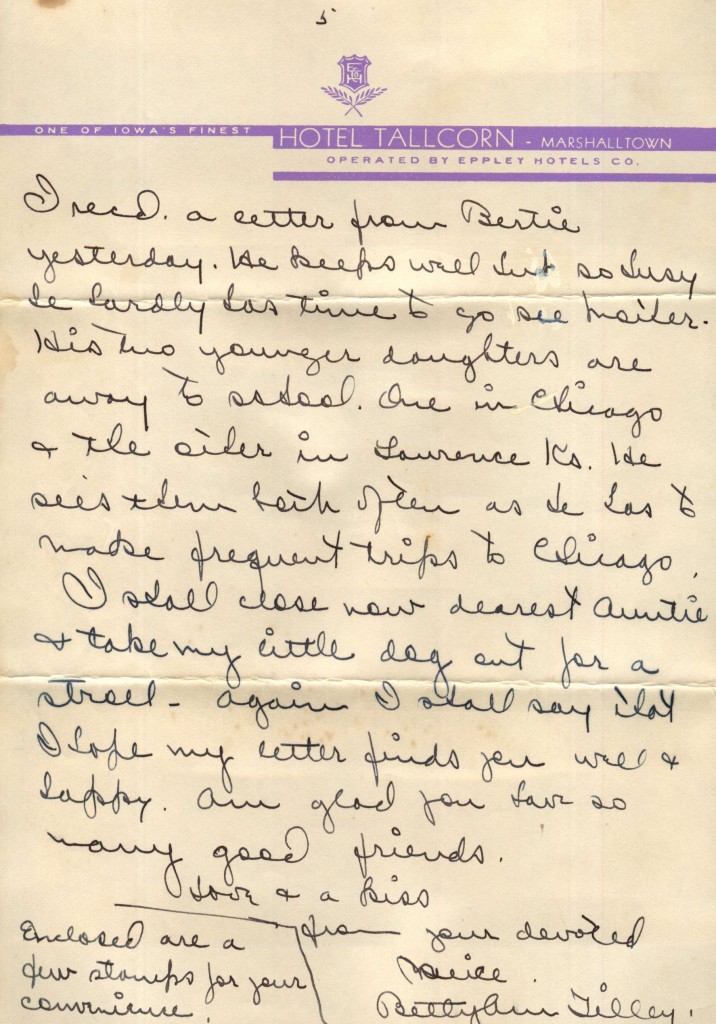 5
ONE OF IOWA'S FINEST HOTEL TALLCORN - MARSHALLTOWN
OPERATED BY EPPLEY HOTELS CO.
I recd. a letter from Bertie
yesterday. He keeps well but so busy
he hardly has time to go see Mother.
His two younger daughters are
away to school. One in Chicago
& the other in Lawrence Ks. He
sees them both often as he has to
make frequent trips to Chicago.
I shall close now dearest Auntie
& take my little dog out for a
stroll - again I shall say that
I hope my letter finds you well &
happy. Am glad you have so
many good friends.
Love & a kiss
from your devoted
neice.
BettyAnn Tilley.
Enclosed are a
few stamps for your
convenience.